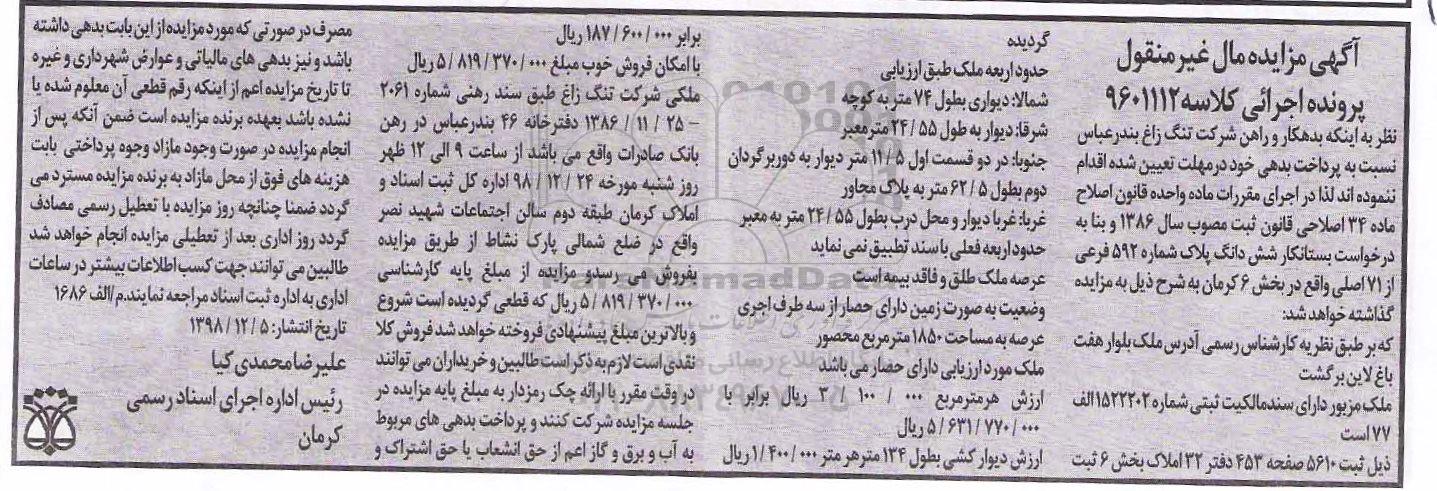 آگهی مزایده مال غیر منقول
پرونده اجرائی کلاسه ۹۶۰۱۱۱۲
نظر به اینکه بدهکار و راهن شرکت تنگ زاغ بندرعباس
نسبت به پرداخت بدهی خود درمهلت تعیین شده اقدام
ننموده اند لذا در اجرای مقررات ماده واحده قانون اصلاح
ماده ۳۴ اصلاحی قانون ثبت مصوب سال ۱۳۸۶ و بنا به
درخواست بستانکار شش دانگ پلاک شماره ۵۹۲ فرعی
از ۷۱ اصلی واقع در بخش ۶ کرمان به شرح ذیل به مزایده
گذاشته خواهد شد:
که بر طبق نظریه کارشناس رسمی آدرس ملک بلوار هفت
باغ لاین برگشت
ملک مزبور دارای سندمالکیت ثبتی شماره ۱۵۲۲۲۰۲الف
۷۷ است
ذیل ثبت ۵۶۱۰ صفحه ۴۵۳ دفتر ۳۲ املاک بخش ۶ ثبت
گردیده
حدود اربعه ملک طبق ارزیابی
شمالا: دیواری بطول ۷۴ متر به کوچه
شرقا: دیوار به طول ۵۵ / ۲۴ مترمعبر
جنوبا: در دو قسمت اول ۵ / ۱۱ متر دیوار به دوربرگردان
دوم بطول ۵ / ۶۲ متر به پلاگ مجاور
غربا: غربا دیوار و محل درب بطول ۵۵ / ۲۴ متر به معبر
حدود اربعه فعلی با سند تطبیق نمی نماید
عرصه ملک طلق و فاقد بیمه است
وضعیت به صورت زمین دارای حصار از سه طرف اجری
عرصه به مساحت ۱۸۵۰ مترمربع محصور
ملک مورد ارزیابی دارای حصار می باشد
ارزش هرمترمربع ۰۰۰ / ۱۰۰ / ۳ ریال برابر با
۰۰۰ / ۷۷۰ / ۶۳۱ / ۵ ریال
ارزش دیوار کشی بطول ۱۳۴ مترهر متر ۰۰۰ / ۴۰۰ / ۱ ریال
برابر ۰۰۰ / ۶۰۰ / ۱۸۷ ریال
با امکان فروش خوب مبلغ ۰۰۰ / ۳۷۰ / ۸۱۹ / ۵ ریال
ملکی شرکت تنگ زاغ طبق سند رهنی شماره ۲۰۶۱
– ۲۵ / ۱۱ / ۱۳۸۶ دفترخانه ۴۶ بندرعباس در رهن
بانک صادرات واقع می باشد از ساعت ۹ الی ۱۲ ظهر
روز شنبه مورخه ۲۴ / ۱۲ / ۹۸ اداره کل ثبت اسناد و
املاک کرمان طبقه دوم سالن اجتماعات شهید نصر
واقع در ضلع شمالی پارک نشاط از طریق مزایده
بفروش می رسدو مزایده از مبلغ پایه کارشناسی
۰۰۰ / ۳۷۰ / ۸۱۹ / ۵ ریال که قطعی گردیده است شروع
و بالاترین مبلغ پیشنهادی فروخته خواهد شد فروش کلا
نقدی است لازم به ذکر است طالبین و خریداران می توانند
در وقت مقرر با ارائه چک رمزدار به مبلغ پایه مزایده در
جلسه مزایده شرکت کنند و پرداخت بدهی های مربوط
به آب و برق و گاز اعم از حق انشعاب یا حق اشتراک و
مصرف در صورتی که مورد مزایده از این بابت بدهی داشته
باشد و نیز بدهی های مالیاتی و عوارض شهرداری و غیره
تا تاریخ مزایده اعم از اینکه رقم قطعی آن معلوم شده یا
نشده باشد بعهده برنده مزایده است ضمن آنکه پس از
انجام مزایده در صورت وجود مازاد وجوه پرداختی بابت
هزینه های فوق از محل مازاد به برنده مزایده مسترد می
گردد ضمنا چنانچه روز مزایده با تعطیل رسمی مصادف
گردد روز اداری بعد از تعطیلی مزایده انجام خواهد شد
طالبین می توانند جهت کسب اطلاعات بیشتر در ساعات
اداری به اداره ثبت اسناد مراجعه نمایند.م/الف ۱۶۸۶
تاریخ انتشار: ۵ / ۱۲ / ۱۳۹۸
علیرضا محمدی کیا
رئیس اداره اجرای اسناد رسمی
کرمان
ParsNamadData